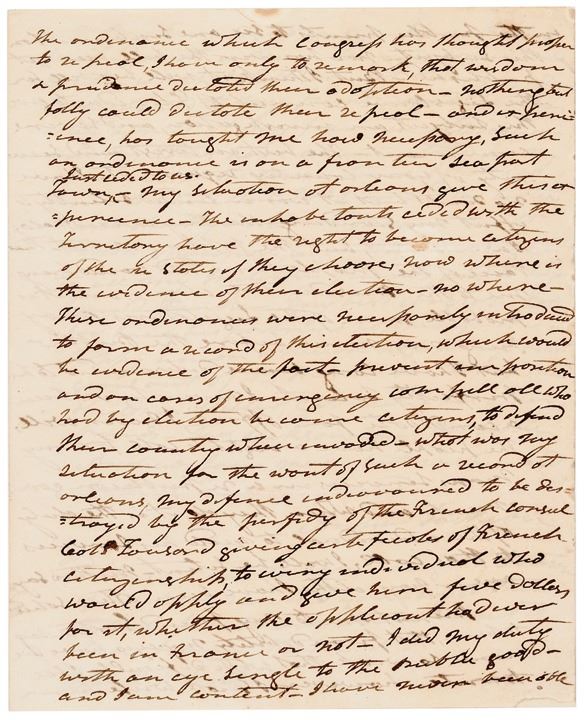 the ordinance which Congress has thought proper
to repeal, I have only to remark, that wisdom
& prudence dictated their adoption – nothing but
folly could dictate their repeal – and experi=
=ence, has taught me how necessary, such
an ordinance is on a frontier sea port
Just ceded to us.
Town, – my situation at orleans gave this ex
=perience – The inhabitants ceded with the
Territory have the right to become citizens
of the U States if they choose, now where is
the evidence of their election – no where –
These ordinances were necessarily introduced
to form a record of this election, which would
be evidence of the fact – prevent imposition
and on cases of emergency compell all who
had by election become citizens, to defend
their country when invaded – what was my
situation for the want of such a record at
orleans, my defence endeavoured to be des=
=troyed by the perfidy of the French consul
Colo Tousard giving certificates of French
citizenship, to every individual who
would apply and give him five dollars
for it, whether the applicant had ever
been in France or not – I did my duty
with an eye single to the publick good –
and I am content – I have never been able